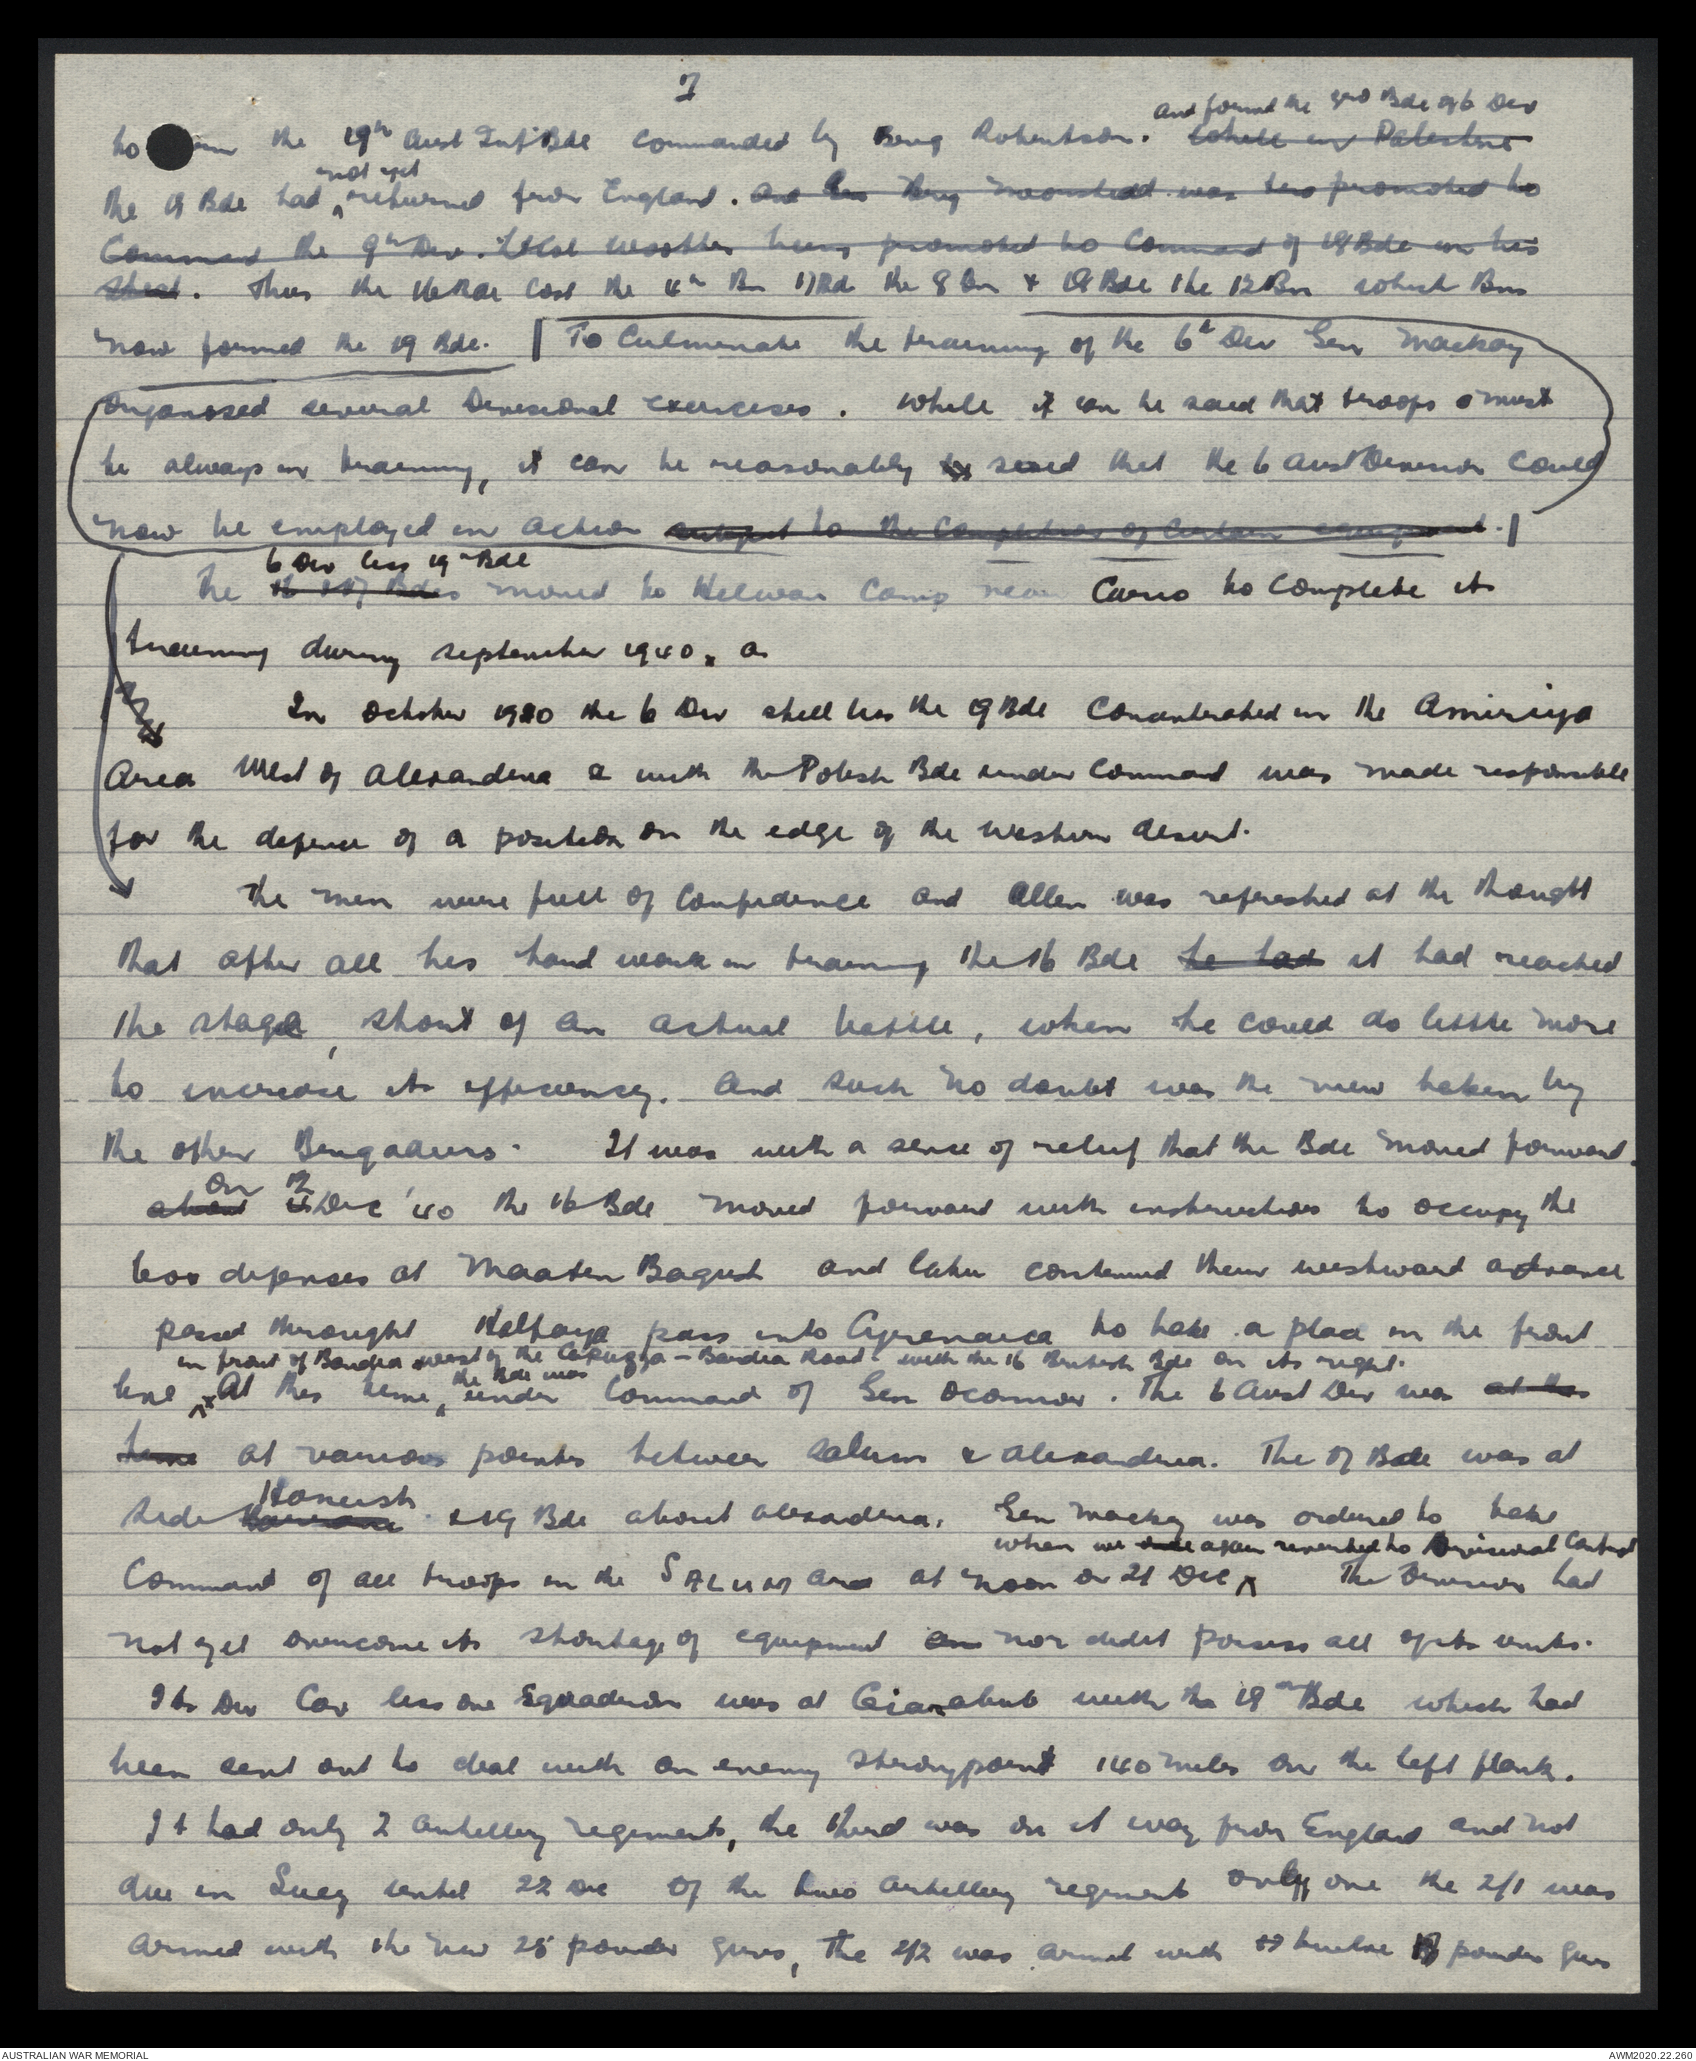 7
and formed the 3rd Bde of 6 Div
to form the 19th Aust Inf Bde commanded by Brig Robertson. while in Palestine
not yet
the 18 Bde had returned from England. and Brig Morshead was promoted to
Command the 9th Div. Lt Col Wootten being promoted to Command of 18 Bde in his
stead. Thus the 16 Bde lost the 4th Bn 17 Bde the 8 Bn & 18 Bde the 12 Bn which Bns
now formed the 19 Bde. To Culminate the training of the 6th Div Gen Mackay
organised several Divisional exercises. While it can be said that troops must
be always in training, it can be reasonably said that the 6 Aust Division could
now be employed in action subject to the completion of certain equipment.
6 Div less 19th Bde
The 16 & 17 Bdes moved to Helwan Camp near Cairo to complete its
training during September 1940. a
In October 1940 the 6 Div still less the 19 Bde concentrated in the Amiriya
Area West of Alexandria & with the Polish Bde under command was made responsible
for the defence of a position on the edge of the western desert.
The men were full of confidence and Allen was refreshed at the thought
that after all his hard work in training the 16 Bde he had it had reached
the stage, short of an actual battle, when he could do little more
to increase its efficiency. And such no doubt was the view taken by
the other Brigadiers. It was with a sense of relief that the Bde moved forward.
On 12
about Dec '40 the 16 Bde moved forward with instructions to occupy the
box defences at Maaten Bagush and later continued their westward advance
passed throught Halfaya pass into Cyrenaica to take a place in the front
in front of Bardia west of the Capuzzo - Bardia Road - with the 16 British Bde on its right.
the Bde was
line. At this time, under Command of Gen Oconnor. The 6 Aust Div was at this
time at various points between Salum & Alexandria. The 17 Bde was at
Haneish
Sidi & 19 Bde about Alexandria. Gen Mackay was ordered to take
when we again reverted to Divisional Control
Command of all troops in the SALUM area at noon on 21 Dec The Division had
not yet overcome its shortage of equipment nor didit possess all of its units.
Its Div Cav less one Squadron was at Giarabub with the 18th Bde which had
been sent out to deal with an enemy strongpoint 140 miles on the left flank.
It had only 2 artillery regiments, the third was on it way from England and not
due in Suez until 22 Dec Of the two artillery regiments only one the 2/1 was
armed with the new 25 pounder guns, The 2/2 was armed with twelve 18 pounder guns
AUSTRALIAN WAR MEMORIAL
AWM2020.22.260